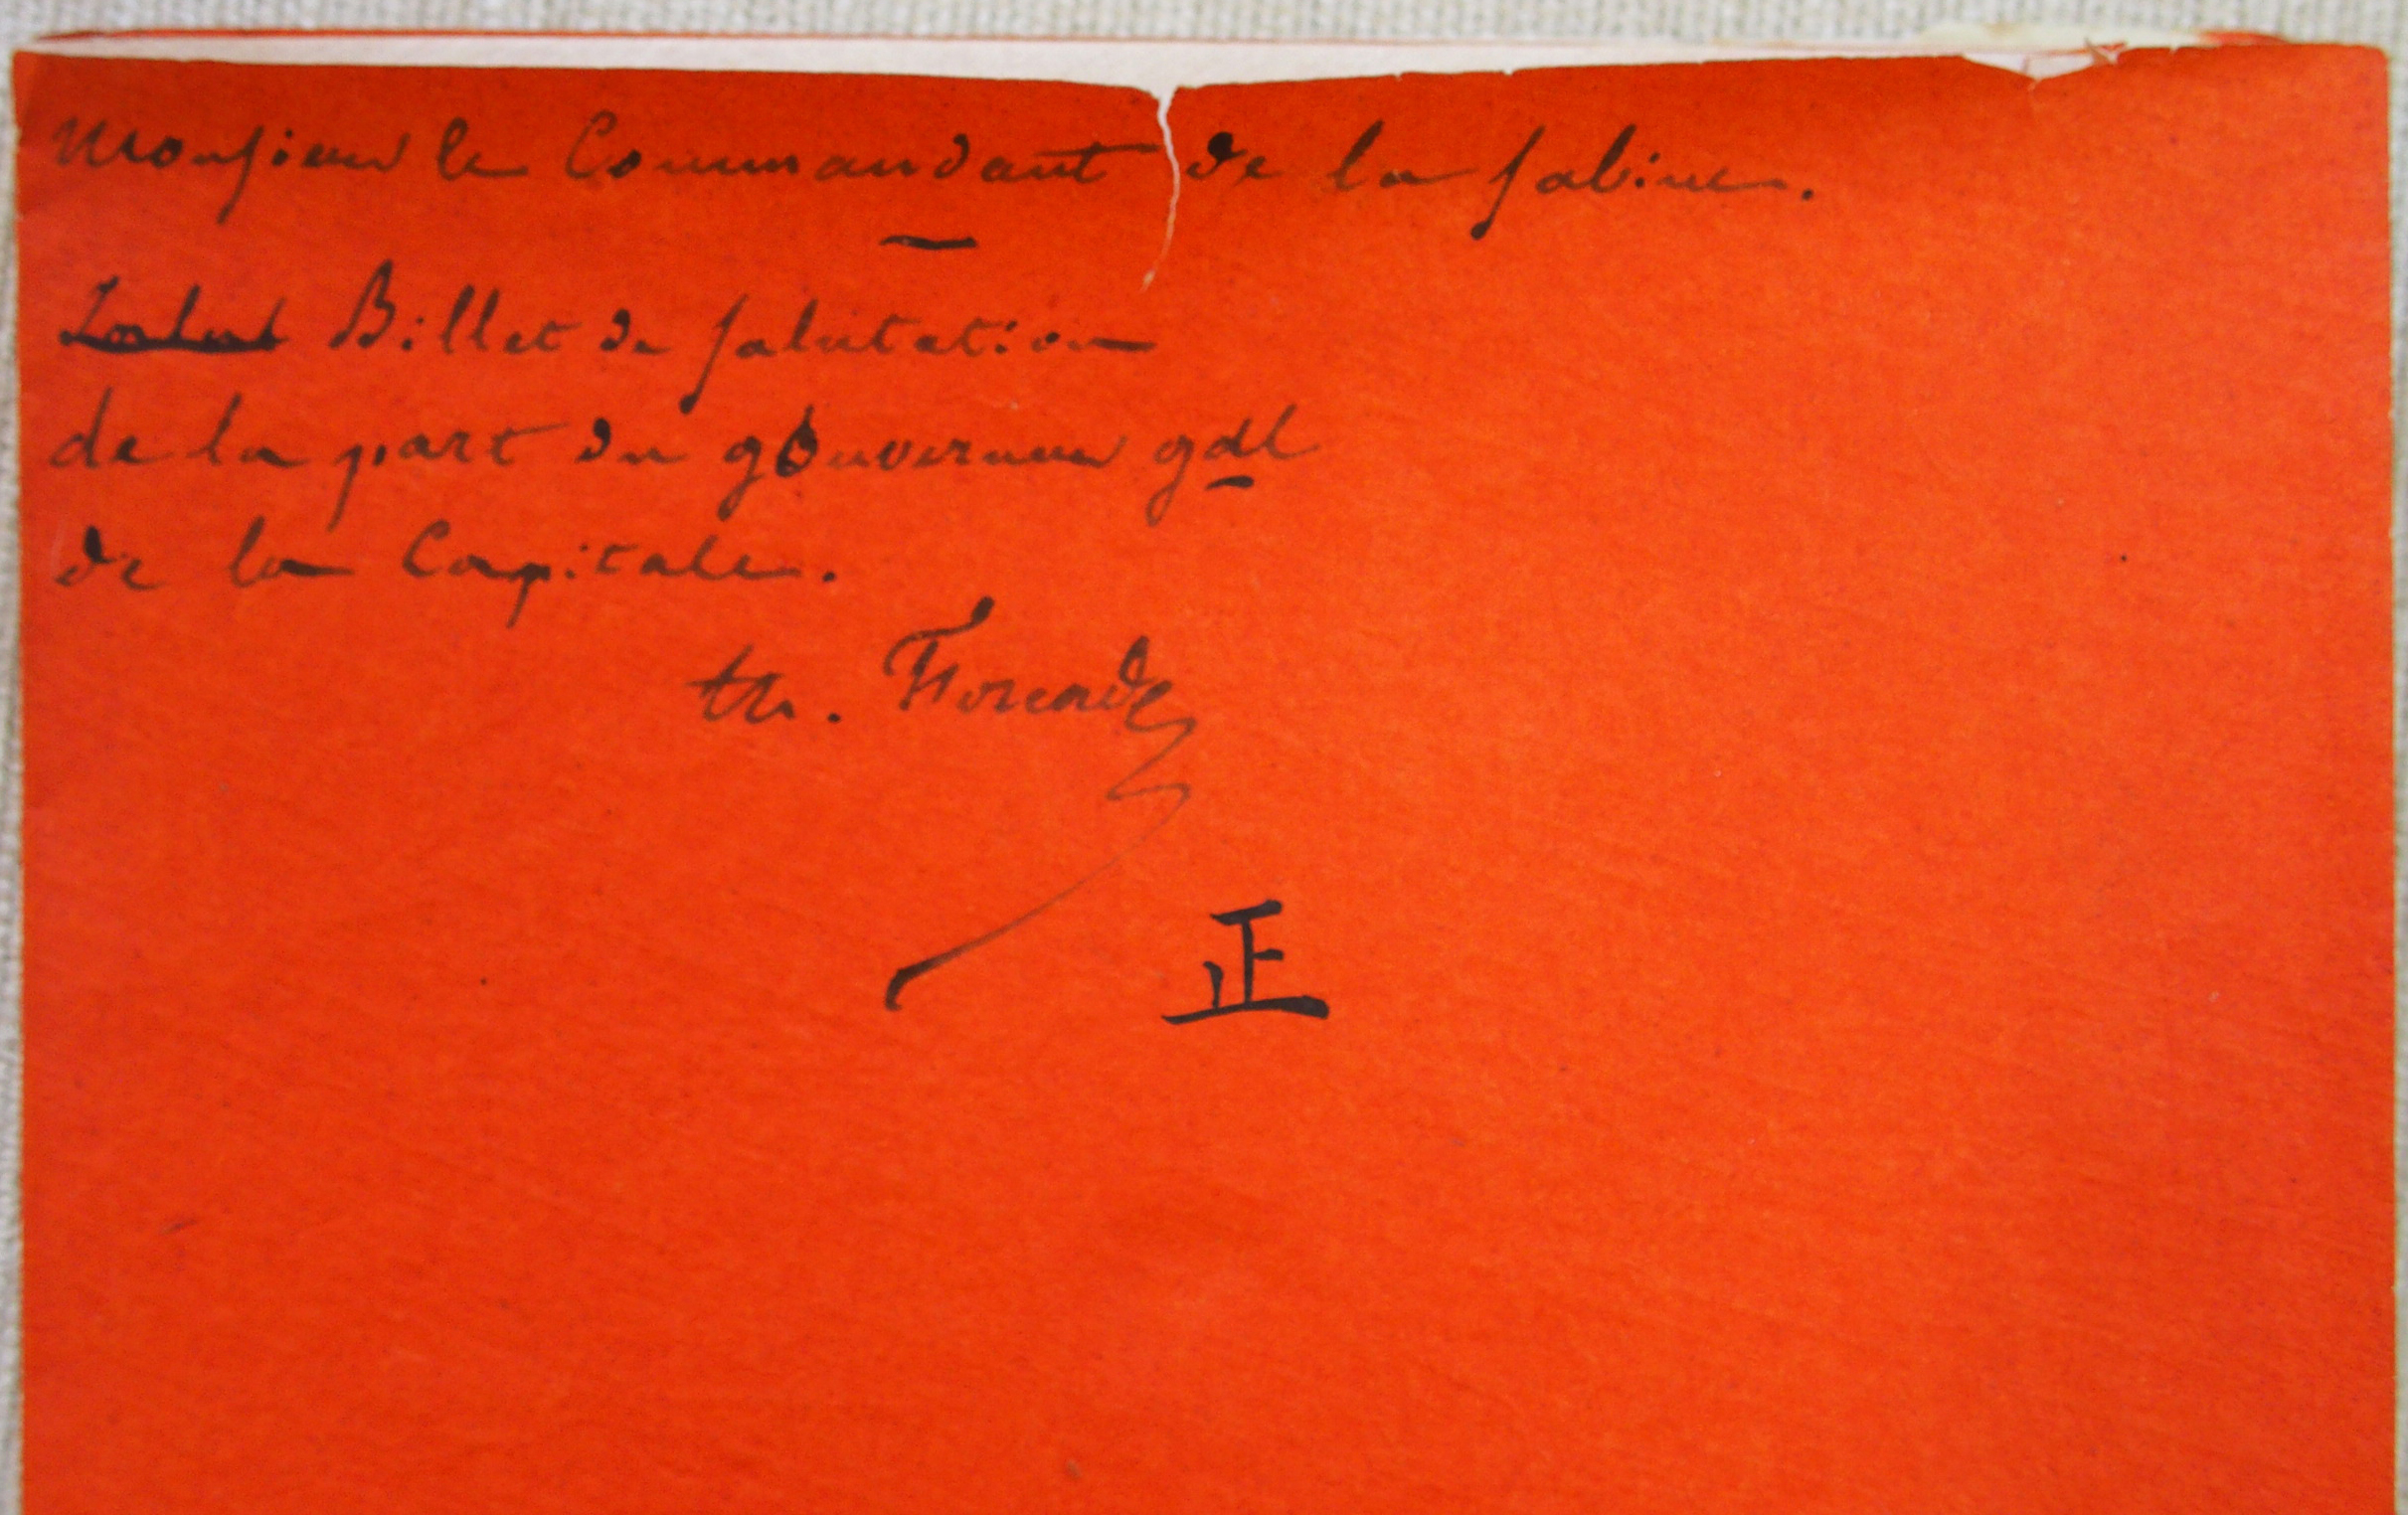 Monsieur le Commandant de la Sabine.
Billet de salutation
de la part du gouverneur gal
de la Capitale.
th. Forcade
正